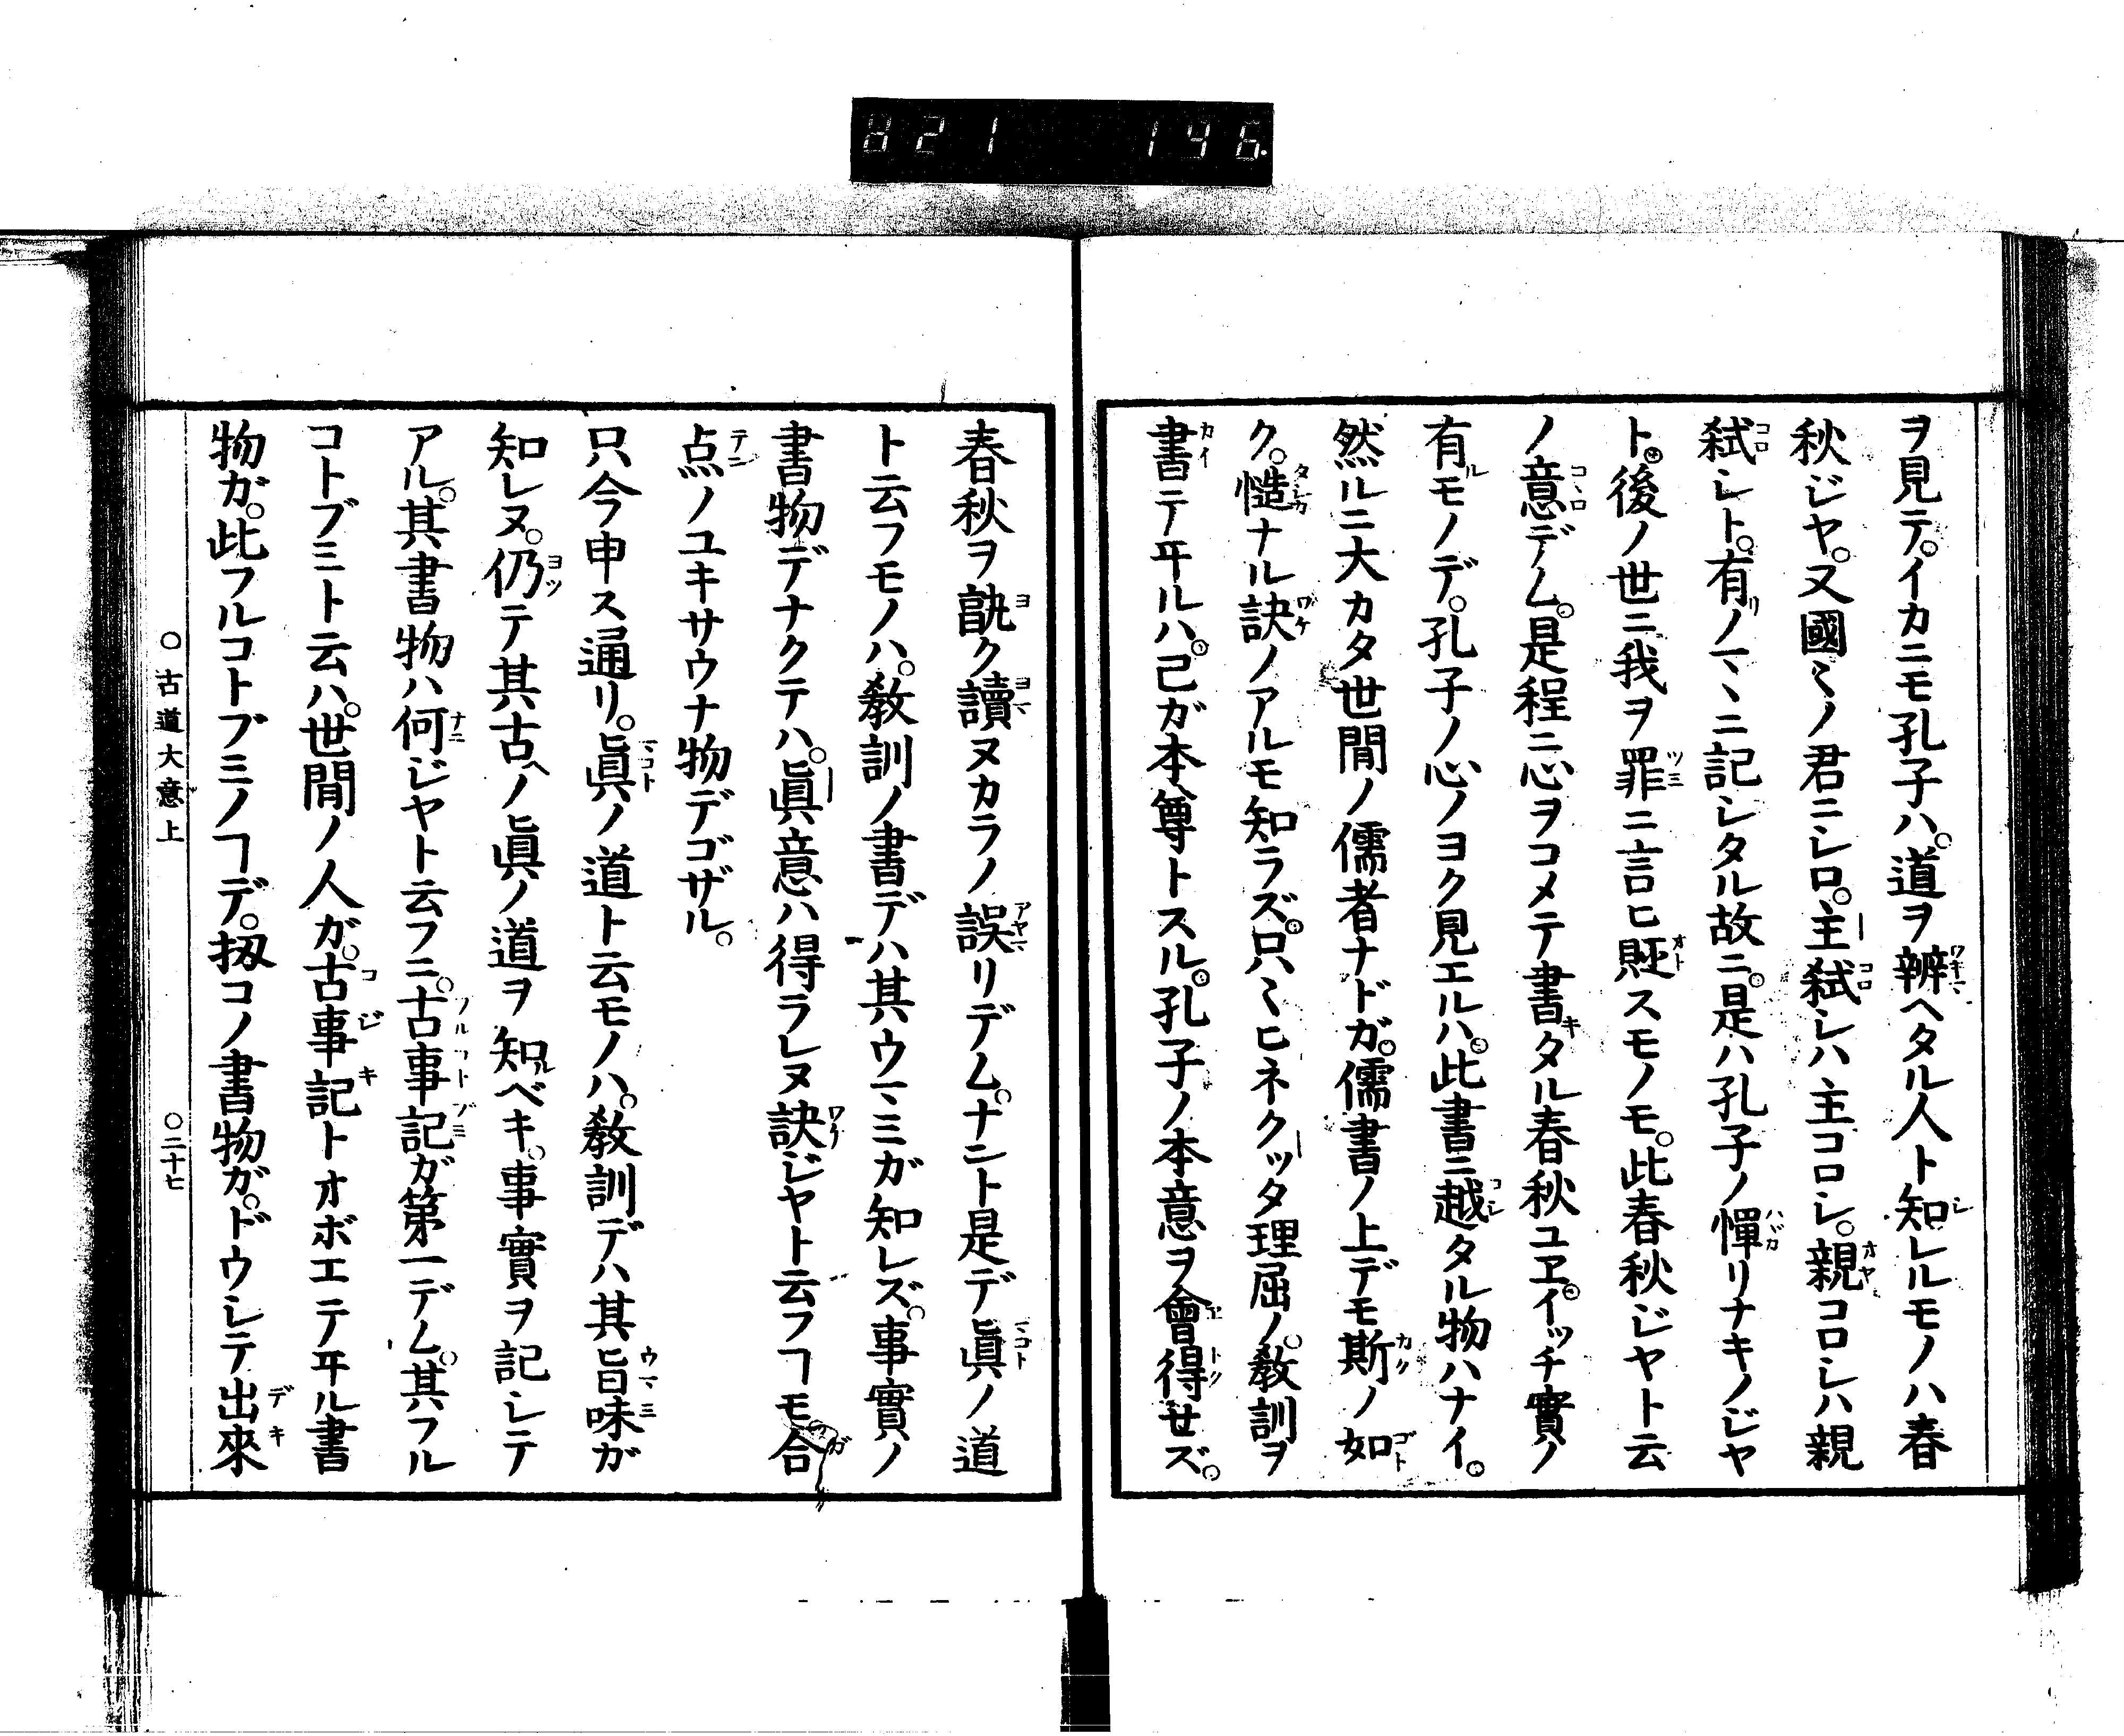 821 146.
ヲ見テ。イカニモ孔子ハ。道ヲ辨ヘタル人ト知レルモノハ春
秋ジヤ。又國〻ノ君ニシロ。主弑シハ主コロシ。親コロシハ親
弑シト。有ノマヽニ記シタル故ニ。是ハ孔子ノ憚リナキノジヤ
ト。後ノ世ニ我ヲ罪ニ言ヒ貶スモノモ。此春秋ジヤト云
ノ意デム。是程ニ心ヲコメテ書タル春秋ユヱ。イツチ實ノ
有ルモノデ。孔子ノ心ノヨク見エルハ。此書ニ越タル物ハナイ。
然ルニ大カタ世間ノ儒者ナドガ。儒書ノ上デモ斯ノ如
ク。慥ナル訣ノアルモ知ラズ。只〻ヒネクツタ理屈ノ。敎訓ヲ
書テヰルハ。己ガ本尊トスル。孔子ノ本意ヲ會得せズ。
春秋ヲ熟ク讀ヌカラノ誤リデム。ナント是デ眞ノ道
ト云フモノハ。敎訓ノ書デハ其ウマミガ知レズ。事實ノ
書物デナクテハ。眞意ハ得ラレヌ訣ジヤト云フヿモ合
点ノユキサウナ物デゴザル。
只今申ス通リ。眞ノ道ト云モノハ。敎訓デハ其旨味ガ
知レヌ。仍テ其古ヘノ眞ノ道ヲ知ルベキ。事實ヲ記シテ
アル。其書物ハ何ジヤト云フニ。古事記ガ第一デム。其フル
コトブミト云ハ。世間ノ人ガ。古事記トオボエテヰル書
物ガ。此フルコトブミノヿデ。扨コノ書物ガ。ドウシテ出來
○古道大意上 ○二十七